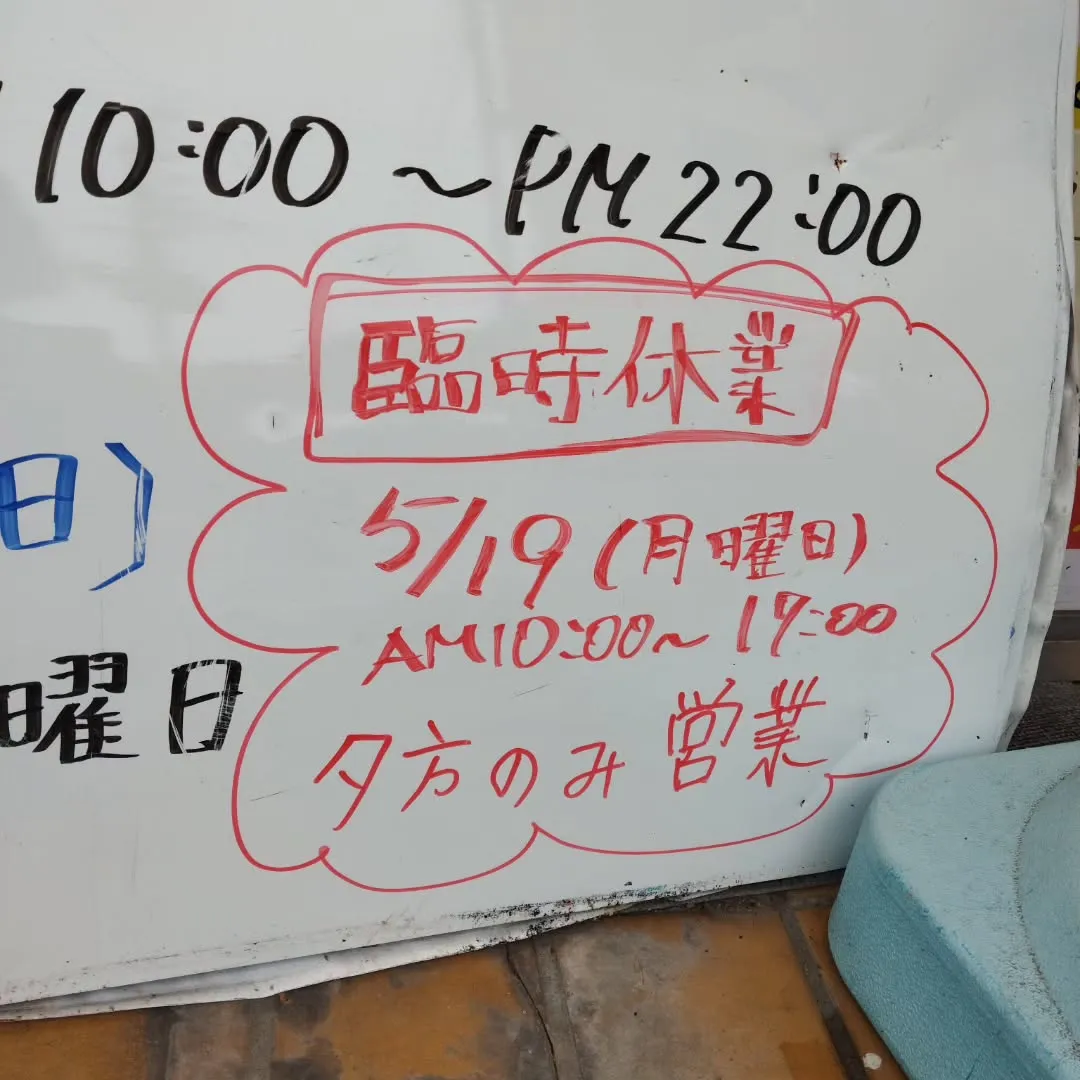 10:00 ～PM 22:00
臨時休業
日)
5/19 (月曜日)
AM10:00～ 17:00
曜日
夕方のみ 営業